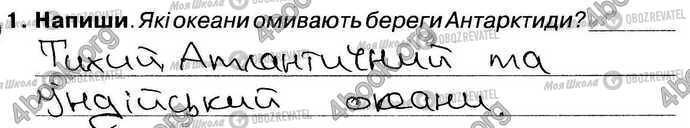 1. Напиши. Які океани омивають береги Антарктиди?
Тихий, Атлантичний та
Індійський океани.
4book.org
Моя Школа
OBOZREVATEL